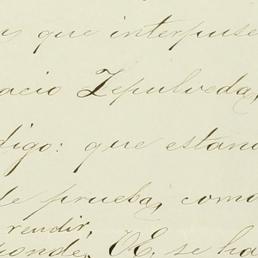 s que interpuse
acio Zepulveda,
digo: que estand
de prueba, como
rendir,
ponde, OE. se ha